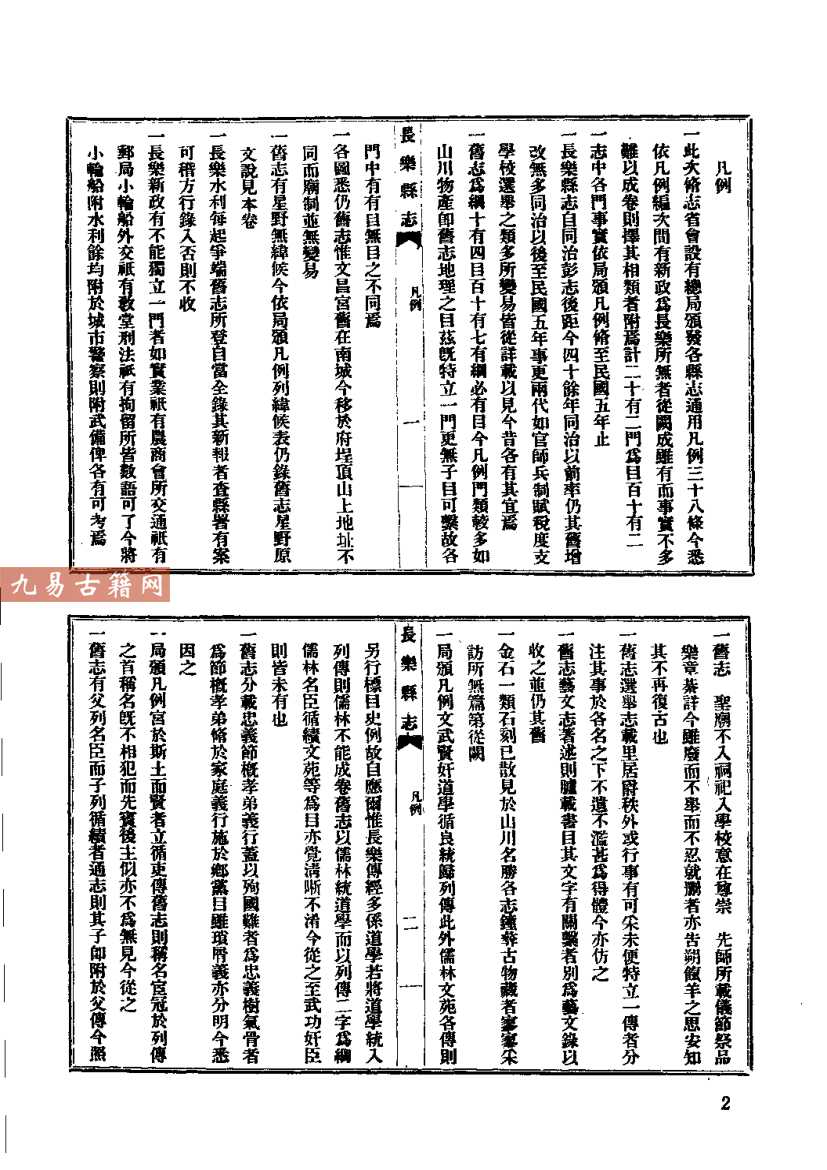 凡例
一此次脩志省會設有總局頒發各縣志通用凡例三十八條今悉
依凡例編次間有新政爲長樂所無者從闕成雖有而事實不多
難以成卷則擇其相類者附焉計二十有二門爲目百十有二
一志中各門事實依局頒凡例脩至民國五年止
一長樂縣志自同治彭志後距今四十餘年同治以前率仍其舊增
改無多同治以後至民國五年事更兩代如官師兵制賦稅度支
學校選舉之類多所變易皆從詳載以見今昔各有其宜焉
一舊志爲綱十有四目百十有七有綱必有目今凡例門類較多如
山川物產卽舊志地理之目茲旣特立一門更無子目可繫故各
長樂縣志
凡例
一
門中有有目無目之不同焉
一各圖悉仍舊志惟文昌宮舊在南城今移於府埕頂山上地址不
同而廟制並無變易
一舊志有星野無緯候今依局頒凡例列緯候表仍錄舊志星野原
文說見本卷
一長樂水利每起爭端舊志所登自當全錄其新報者查縣署有案
可稽方行錄入否則不收
一長樂新政有不能獨立一門者如實業祇有農商會所交通祇有
郵局小輪船外交祇有教堂刑法祇有拘留所皆數語可了今將
小輪船附水利餘均附於城市警察則附武備俾各有可考焉
九易古籍网
一舊志 聖廟不入祠祀入學校意在尊崇 先師所載儀節祭品
樂章綦詳今雖廢而不舉而不忍就删者亦告朔餼羊之思安知
其不再復古也
一舊志選舉志載里居爵秩外或行事有可采未便特立一傳者分
注其事於各名之下不遺不濫甚爲得體今亦仿之
一舊志藝文志著述則臚載書目其文字有關繫者別爲藝文錄以
收之並仍其舊
一金石一類石刻已散見於山川名勝各志鐘彝古物藏者寥寥采
訪所無篇第從闕
一局頒凡例文武賢奸道學循良統歸列傳此外儒林文苑各傳則
長樂縣志
凡例
二
另行標目史例故自應爾惟長樂傳經多係道學若將道學統入
列傳則儒林不能成卷舊志以儒林統道學而以列傳二字爲綱
儒林名臣循績文苑等爲目亦覺清晰不淆今從之至武功奸臣
則皆未有也
一舊志分載忠義節概孝弟義行蓋以殉國難者爲忠義樹氣骨者
爲節概孝弟脩於家庭義行施於鄉黨目雖瑣屑義亦分明今悉
因之
一局頒凡例宮於斯土而賢者立循吏傳舊志則稱名宦冠於列傳
之首稱名旣不相犯而先賓後主似亦不爲無見今從之
一舊志有父列名臣而子列循績者通志則其子卽附於父傳今照
2